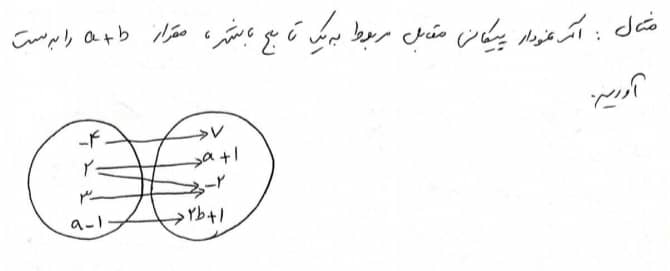 مثال : اگر نمودار پیکانی مقابل مربوط به یک تابع باشد، مقدار a+b را بدست
آورید.
-۴
۷
۲
a+1
۳
-۲
a-1
۲b+1